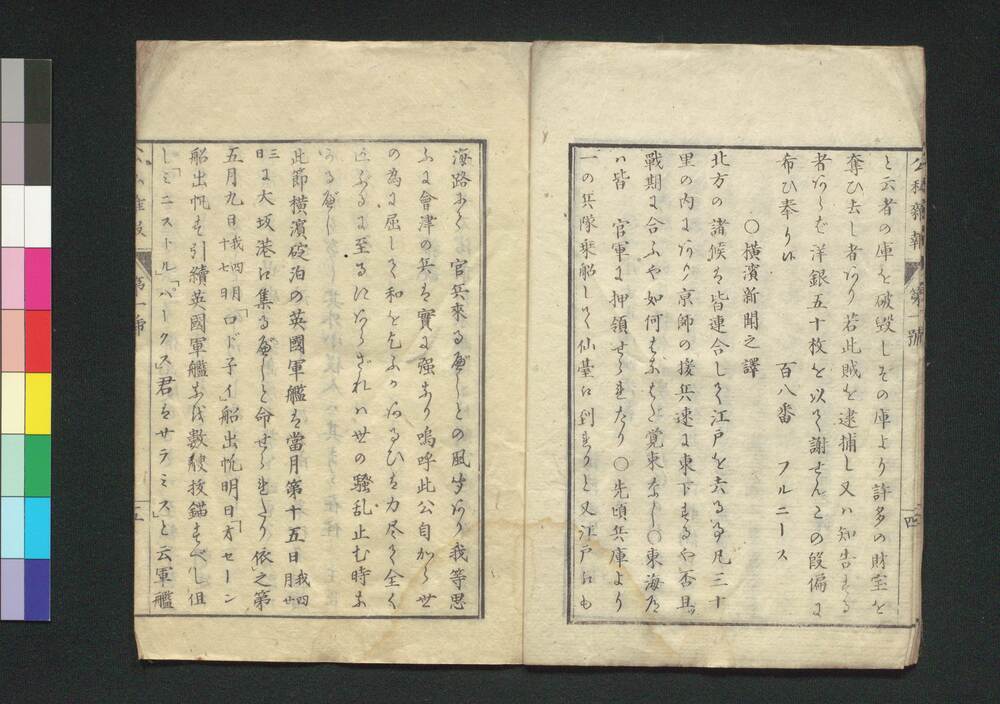 公私雜報 第一號 四
と云者の庫を破毀しその庫より許多の財宝を
奪ひ去し者あり若此賊を逮捕し又ハ知告する
者あらバ洋銀五十枚を以て謝せんこの段偏に
布ひ奉り候 百八番 フルニース
○横濱新聞之譯
北方の諸候ハ皆連合して江戸を去る事凡三十
里の内にあり京師の援兵速に東下するや否且ツ
戰期に合ふや如何もふもハた覚束なし○東海道
ハ皆 官軍に押領せられたり○先頃兵庫より
一の兵隊乗船して仙臺江到るりと又江戸江も
海路より 官兵來るべしとの風聞あり我等思
ふに會津の兵ハ實に強きなり嗚呼此公自から世
の為に屈して和を乞ふかあるひハ力尽て全く
亡ふるに至るにあらざれハ世の騒乱止む時な
かるべし
此節横濱碇泊の英國軍艦ハ當月第十五日我四月廿
三日に大坂港江集るべしと命せられたり依之第
五月九日我四月十七日「ロド子イ」船出帆明日「オセーン」
船出帆も引續英國軍艦なほ數艘拔錨すべし但
し「ミニストル」「パークス」君ハ「サラミス」と云軍艦
第一號 五